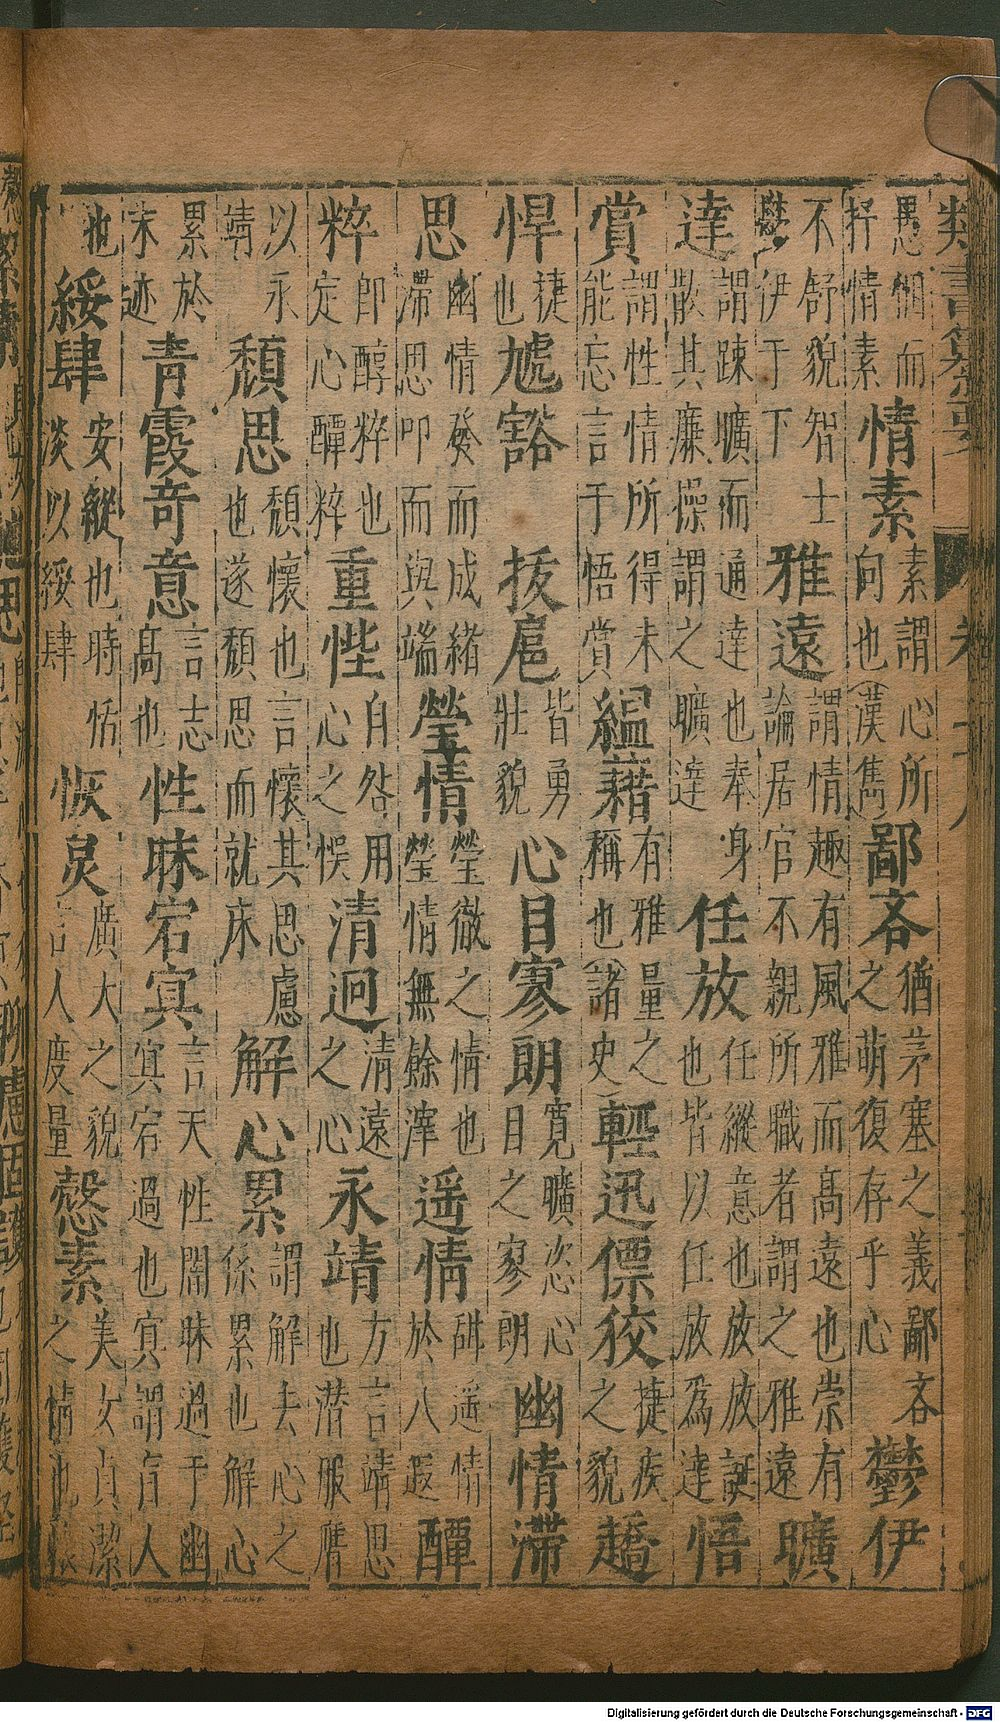 類書纂要 卷十
愚悃而
抒情素
情素
素謂心所
向也(漢雋)
鄙吝
猶茅塞之義鄙吝
之萌復存乎心
鬱伊
不舒貌智士
鬱伊于下
雅遠
謂情趣有風雅而高遠也崇有
論居官不親所職者謂之雅遠
曠
達
謂踈曠而通達也奉身
散其廉操謂之曠達
任放
任縱意也放放誕
也皆以任放為達
悟
賞
謂性情所得未
能忘言于悟賞
縕藉
有雅量之
稱也(諸史)
輕迅僄狡
捷疾
之貌
趫
悍
捷
也
虓豁 扷扈
皆勇
壯貌
心目寥朗
寬曠恣心
目之寥朗
幽情滯
思
幽情發而成緒
滯思叩而與端
瑩情
瑩徹之情也
瑩情無餘滓
遥情
酣遥情
於八遐
醰
粹
即醇粹也
定心醰粹
重悂
自咎用
心之悮
清迥
清遠
之心
永靖
方言靖思
也潛服膺
以永
靖
頹思
頹懷也言懷其思慮
也遂頹思而就床
解心累
謂解去心之
係累也解心
累於
末迹
青霞奇意
言志
高也
性昧宕冥
言天性闇昧過于幽
冥宕過也冥謂盲人
也
綏肆
安縱也時恬
淡以綏肆
恢炅
廣大之貌
言人度量
慤素
美女貞潔
之情也
Digitalisierung gefördert durch die Deutsche Forschungsgemeinschaft - DFG